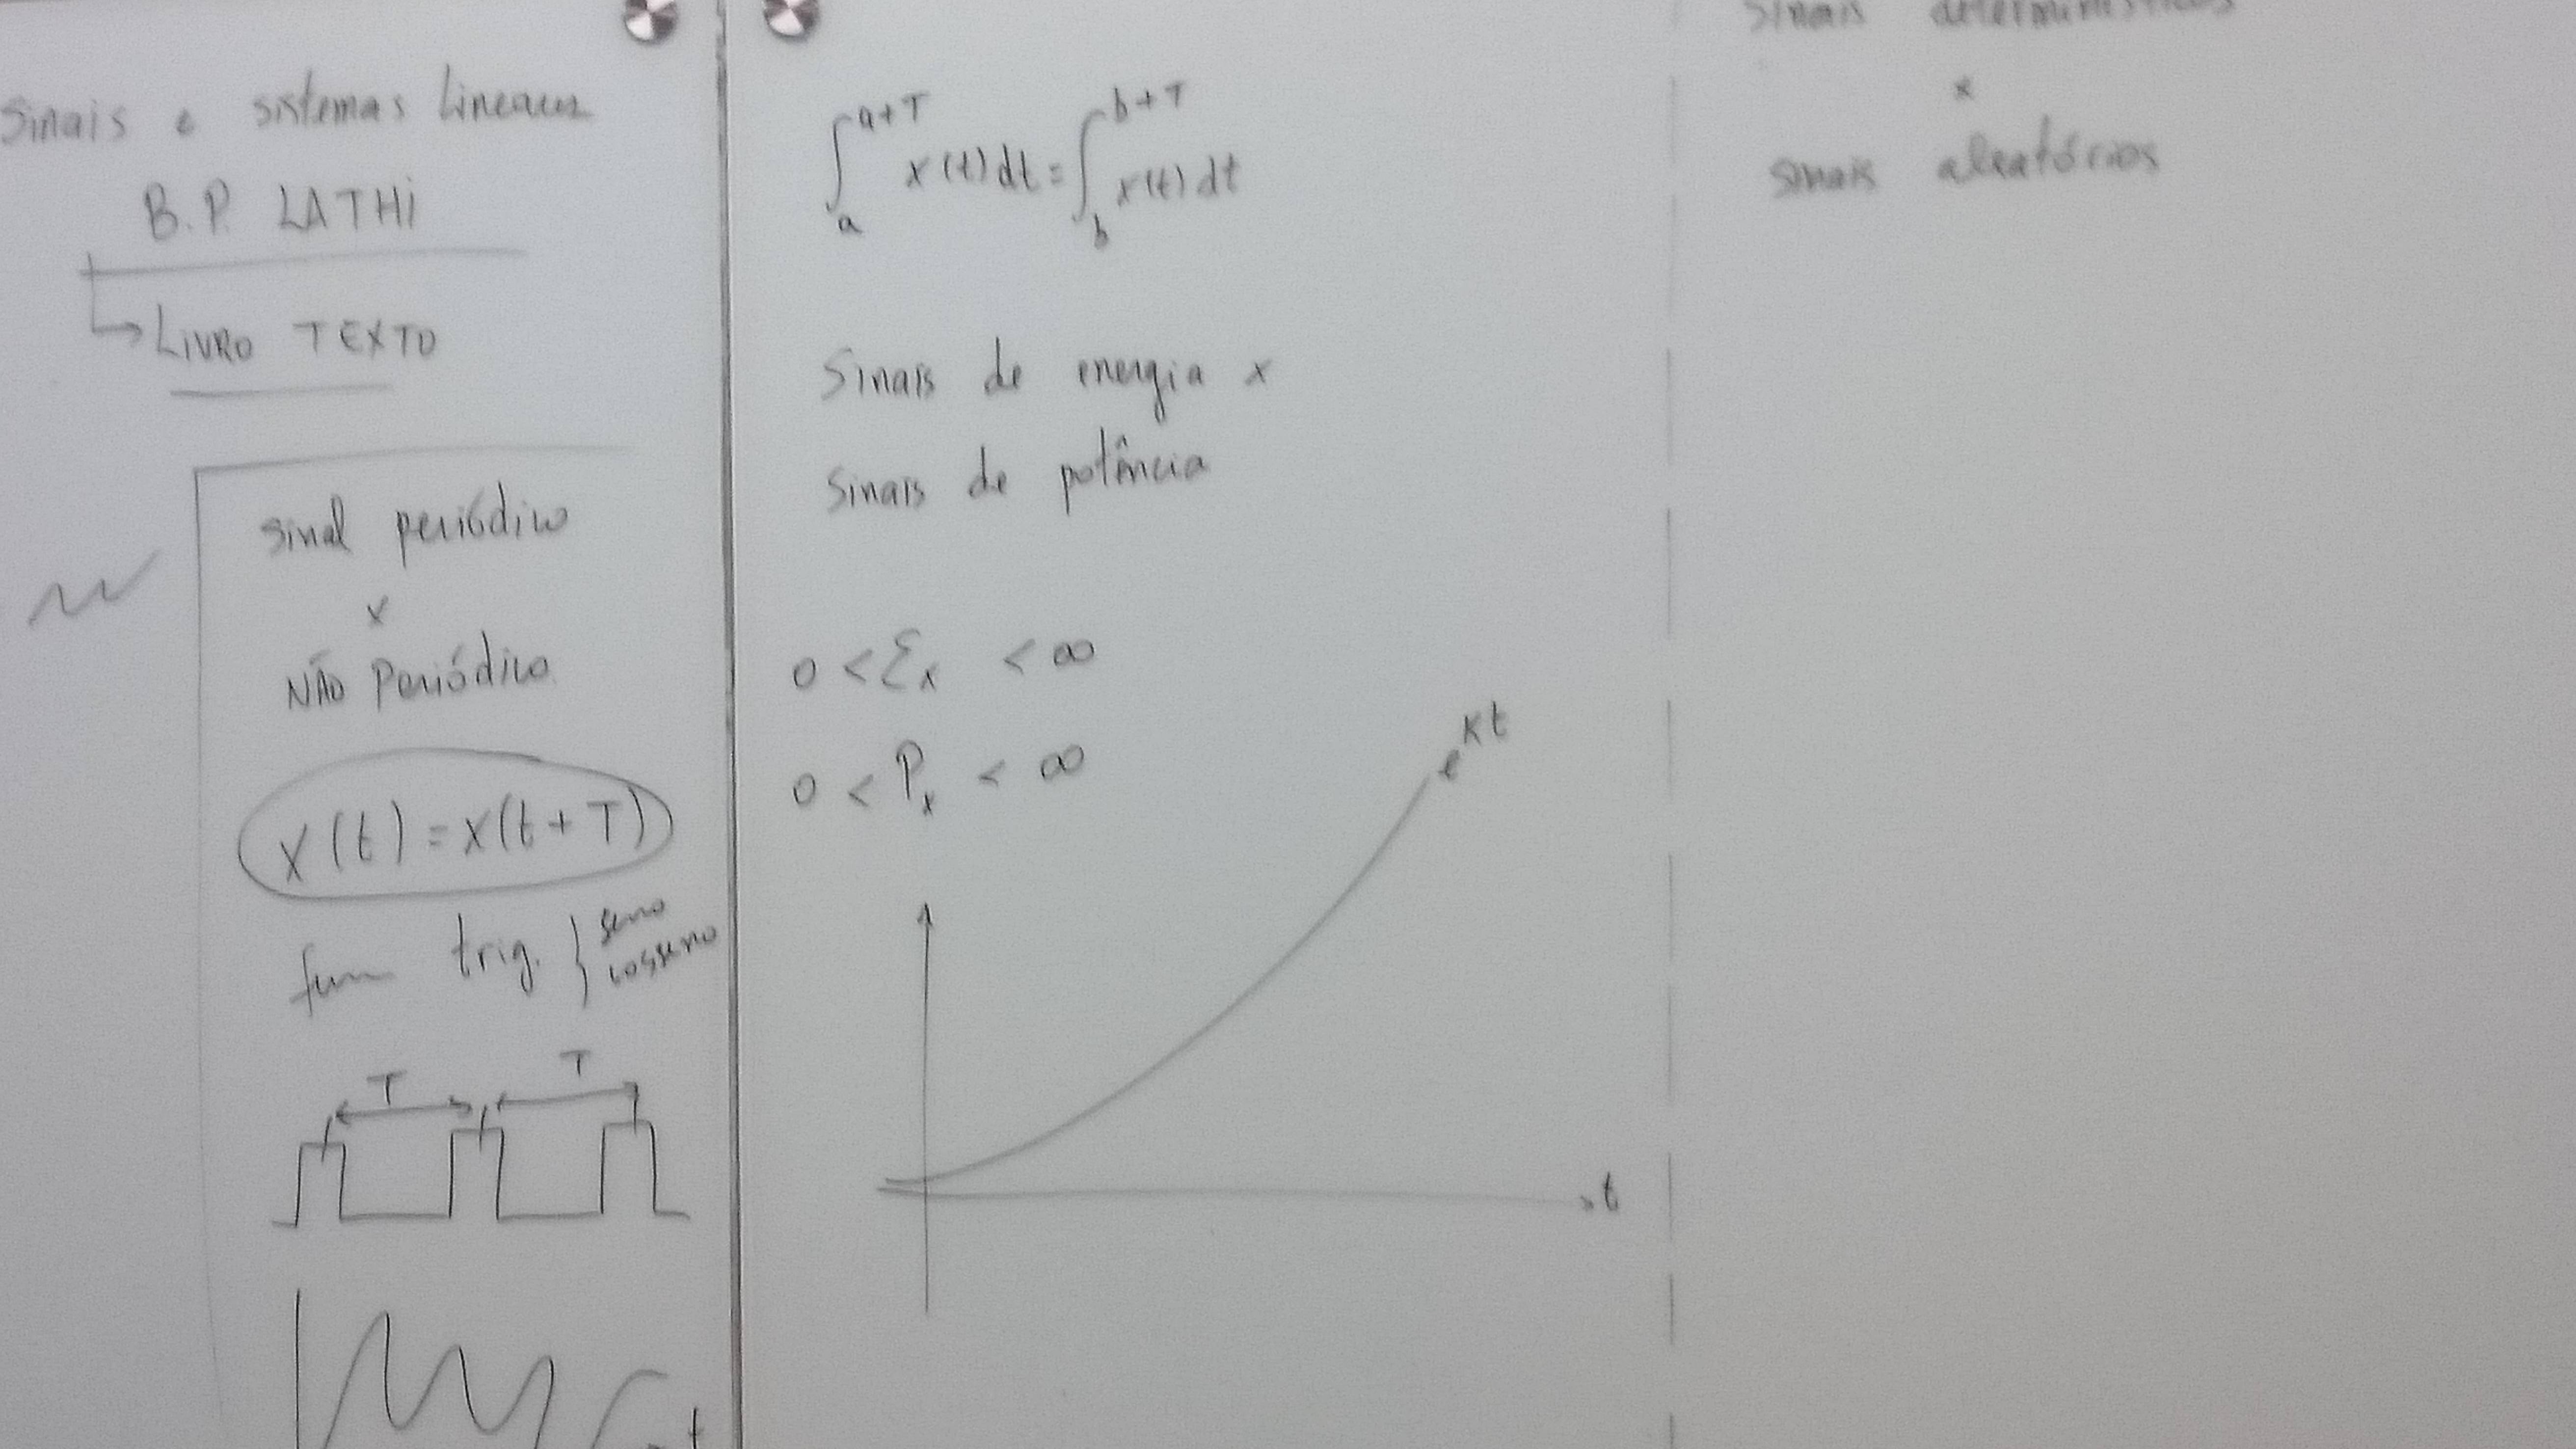 Sinais e sistemas Lineares
B.P. LATHI
LIVRO TEXTO
sinal periódico
x
NÃO Periódico
x(t) = x(t+T)
trig. } seno
cosseno
T T
t
∫_a^{a+T} x(t)dt = ∫_b^{b+T} x(t)dt
Sinais de energia x
Sinais de potência
0 < Ex < ∞
0 < Px < ∞
e^{kt}
t
Sinais determinísticos
x
sinais aleatórios